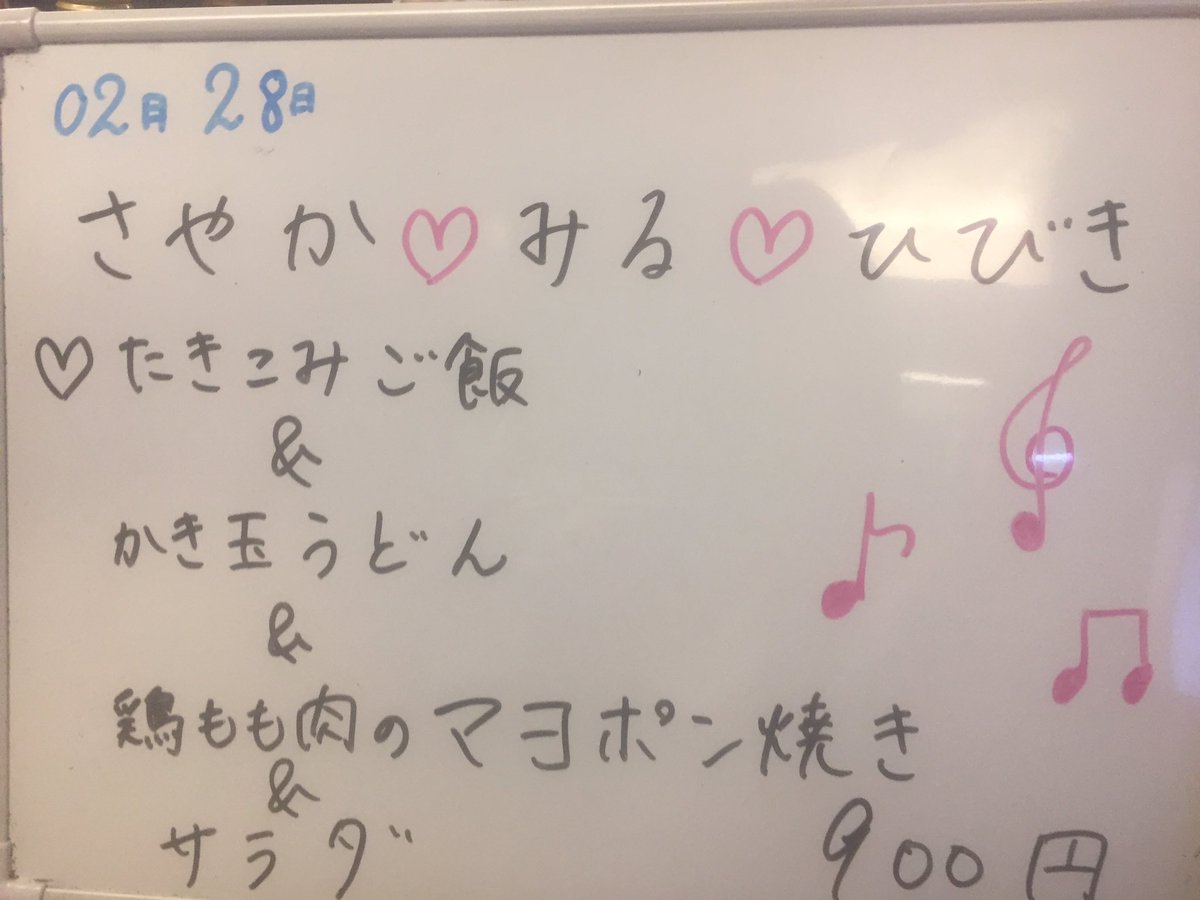 02月28日
さやか♡みる♡ひびき
♡たきこみご飯
&
かき玉うどん
&
鶏もも肉のマヨポン焼き
&
サラダ 900円